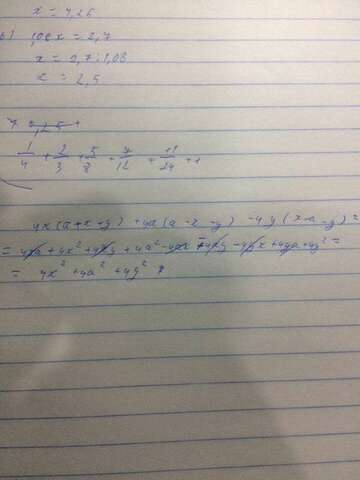 x = 4,26
б) 1,08x = 2,7
x = 2,7 : 1,08
x = 2,5
1/4 + 2/3 + 5/8 + 7/12 + 11/24 + 1
4x(a+x+y) + 4a(a-x-y) - 4y(x-a-y) =
= 4xa + 4x² + 4xy + 4a² - 4ax - 4ay - 4yx + 4ya + 4y² =
= 4x² + 4a² + 4y²